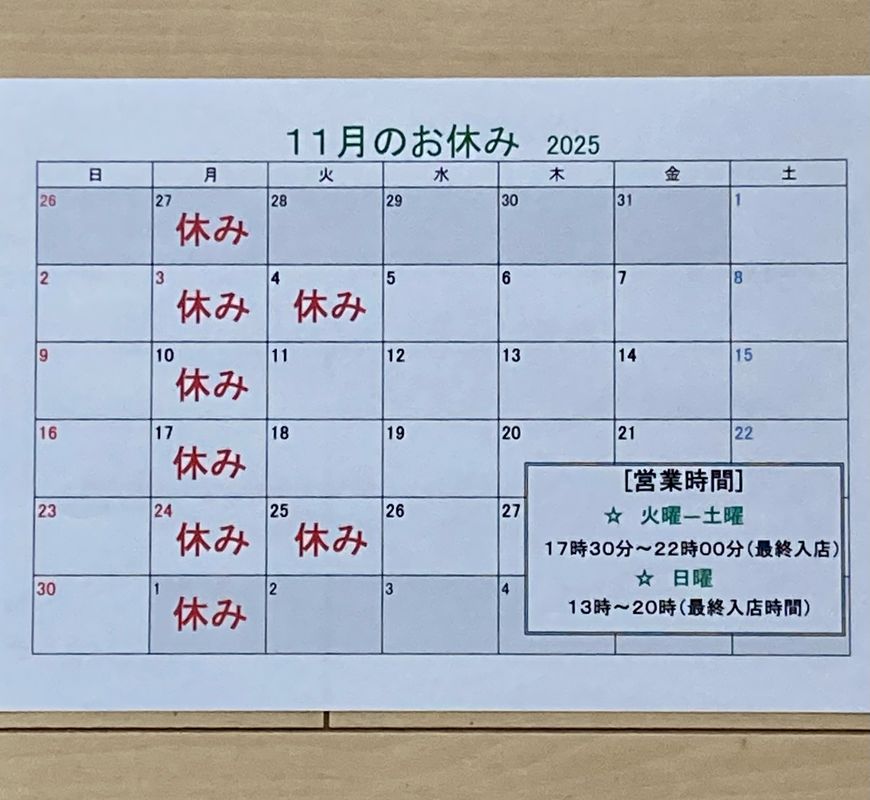 11月のお休み 2025
日 月 火 水 木 金 土
26 27 28 29 30 31 1
休み
2 3 4 5 6 7 8
休み 休み
9 10 11 12 13 14 15
休み
16 17 18 19 20 21 22
休み
23 24 25 26 27
休み 休み
30 1 2 3 4
休み
[営業時間]
☆ 火曜—土曜
17時30分～22時00分(最終入店)
☆ 日曜
13時～20時(最終入店時間)